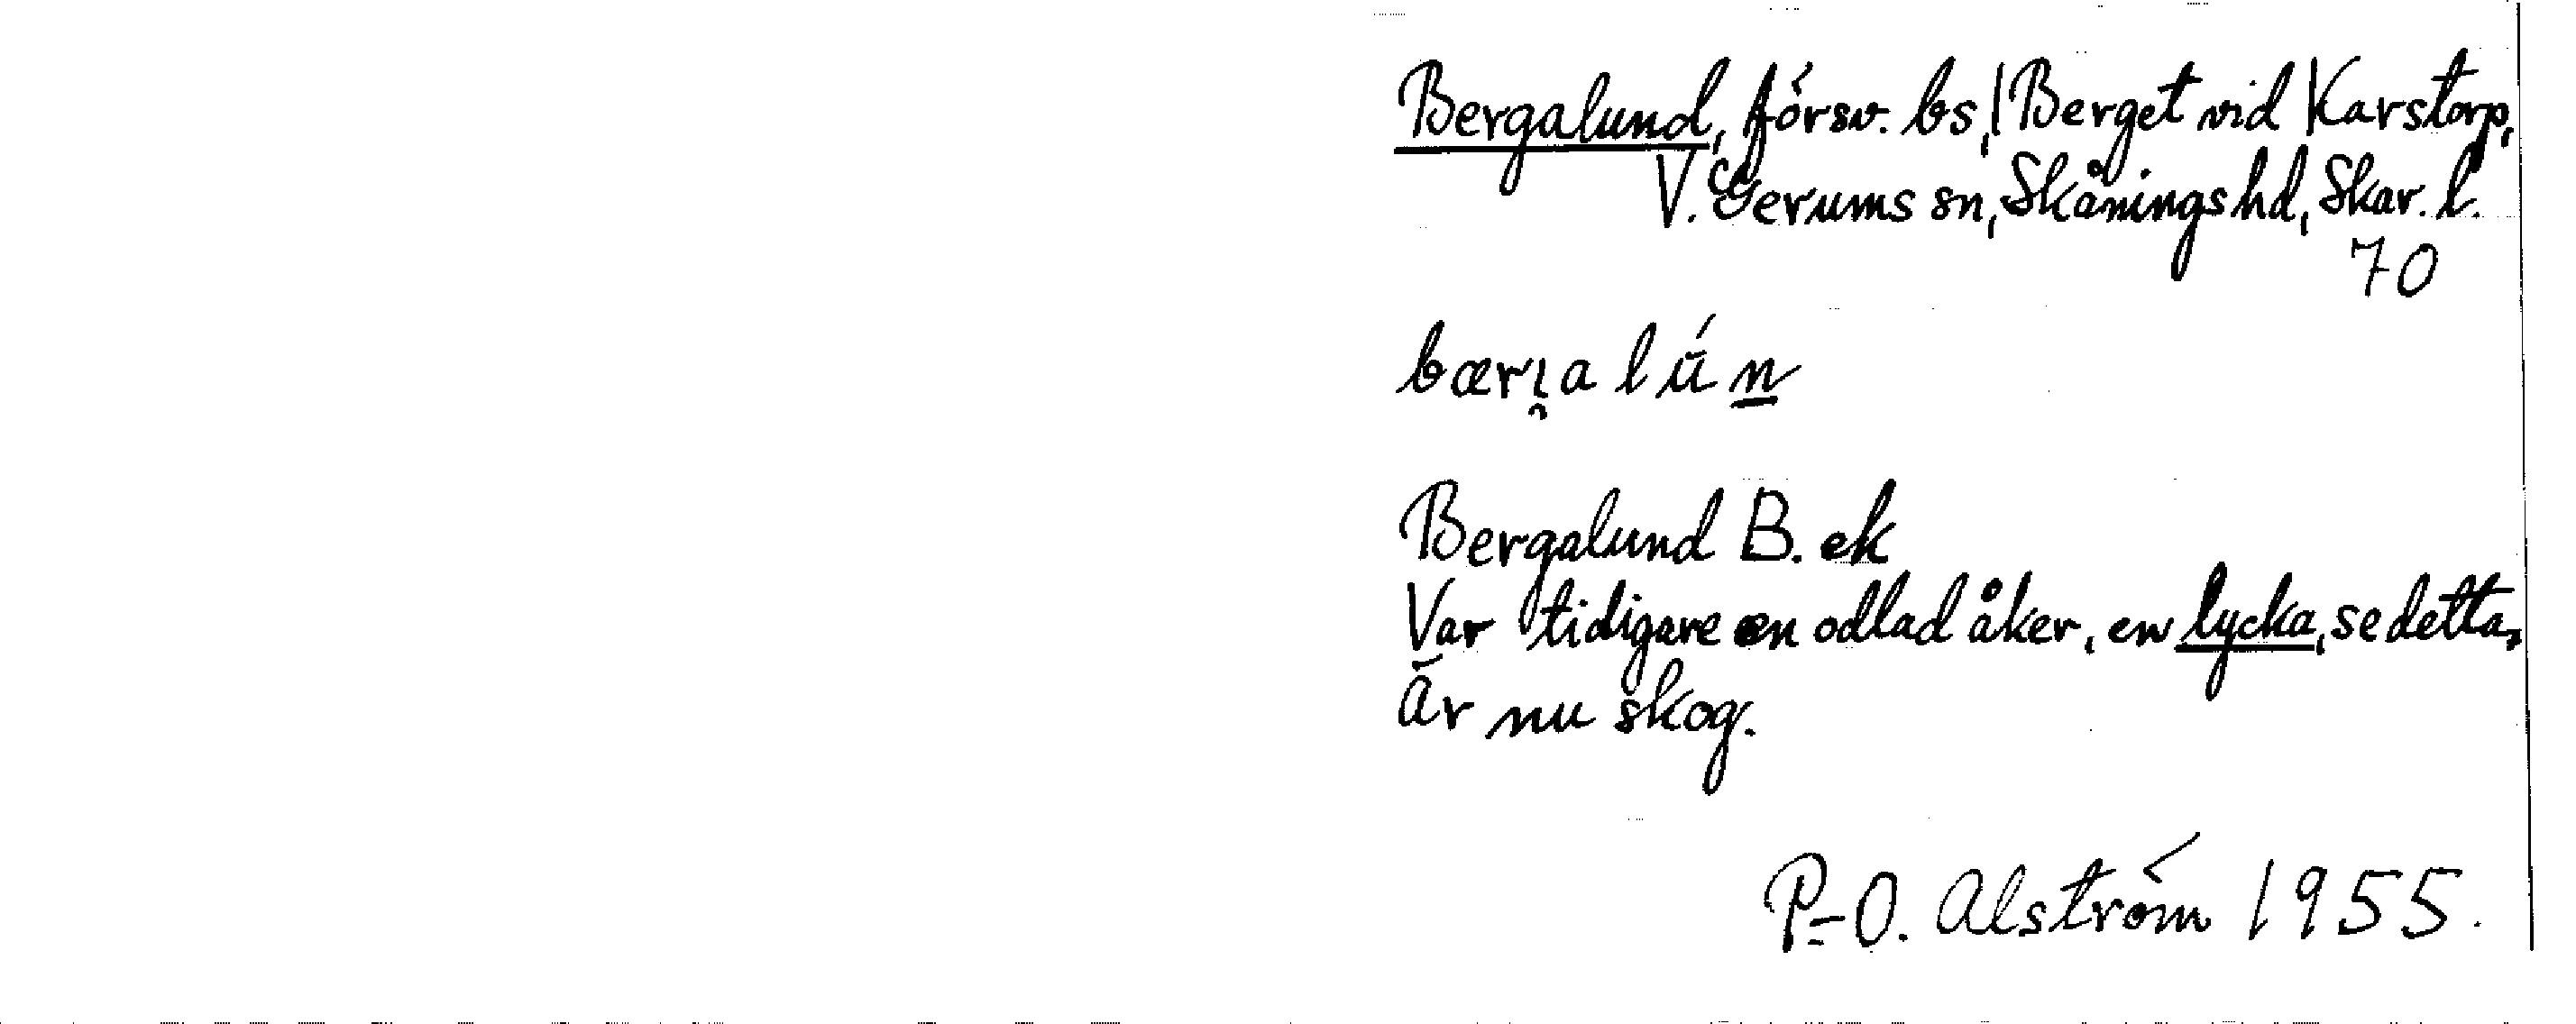 Bergalund, försv. bs, Berget vid Karstorp,
V. Gerums sn, Skånings hd, Skar. l.
70
bæri̯a lún
Bergalund B. ek
Var tidigare en odlad åker, en lycka, se detta,
Är nu skog.
P.-O. Alström 1955.